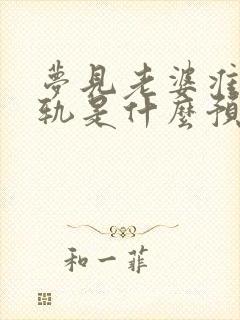 夢見老婆
軌是什麼預
和一菲